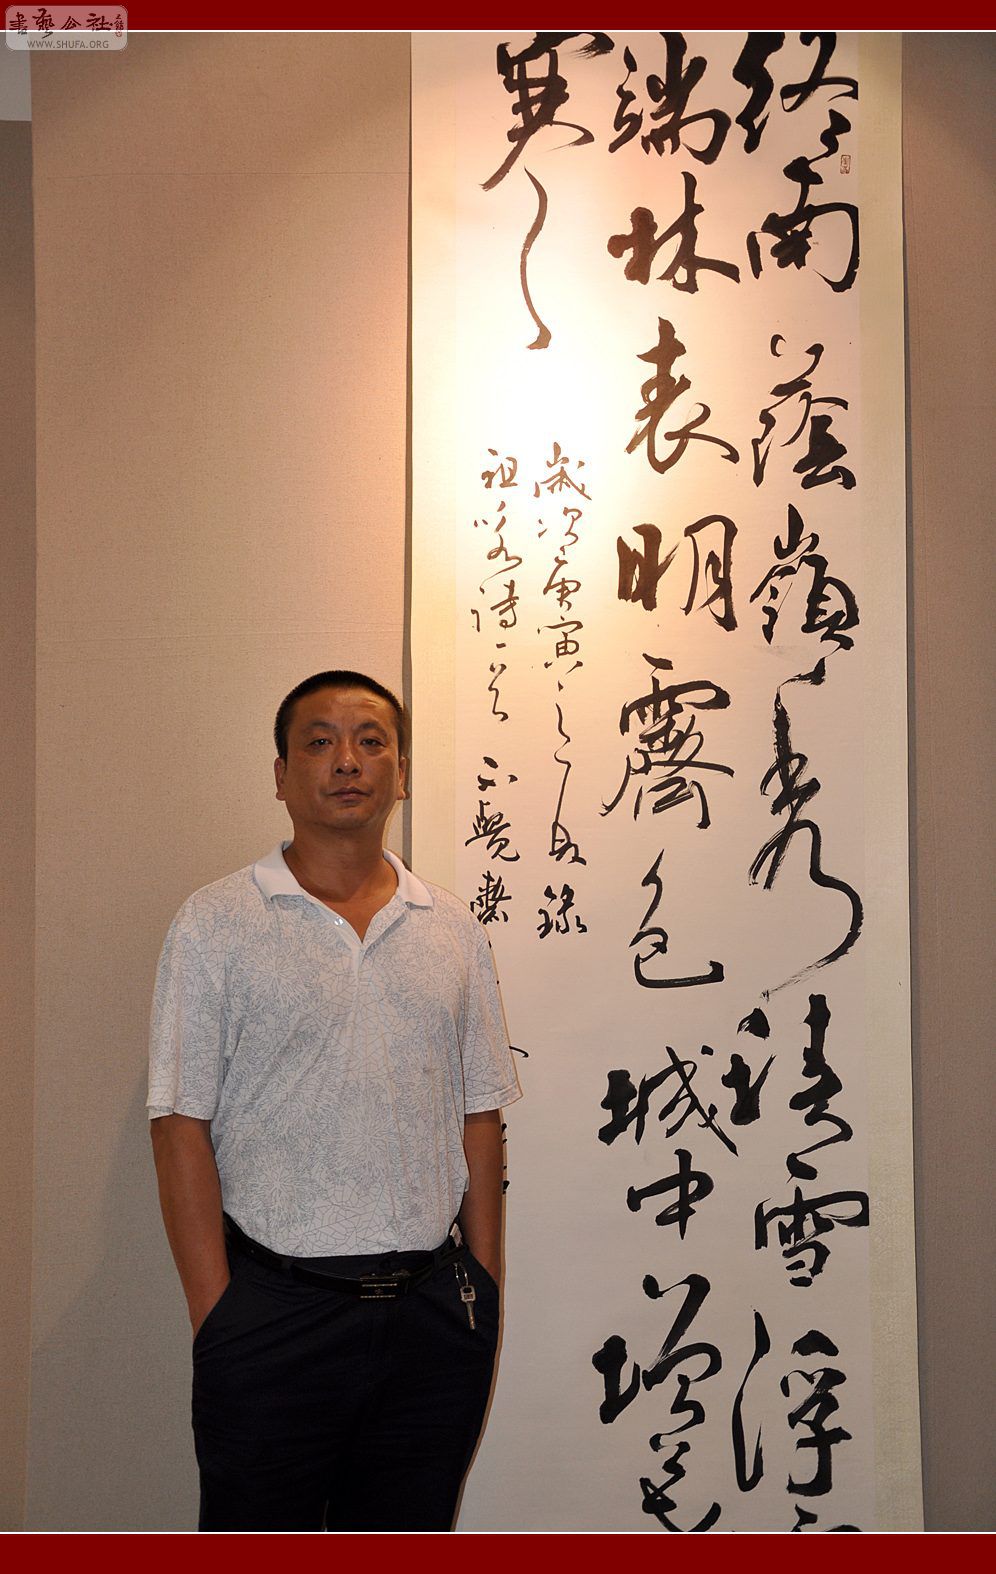 書藝公社
WWW.SHUFA.ORG
終南蔭嶺秀積雪浮
端林表明霽色城中增暮
寒
歲次庚寅之秋錄
祖咏詩一首 不覺